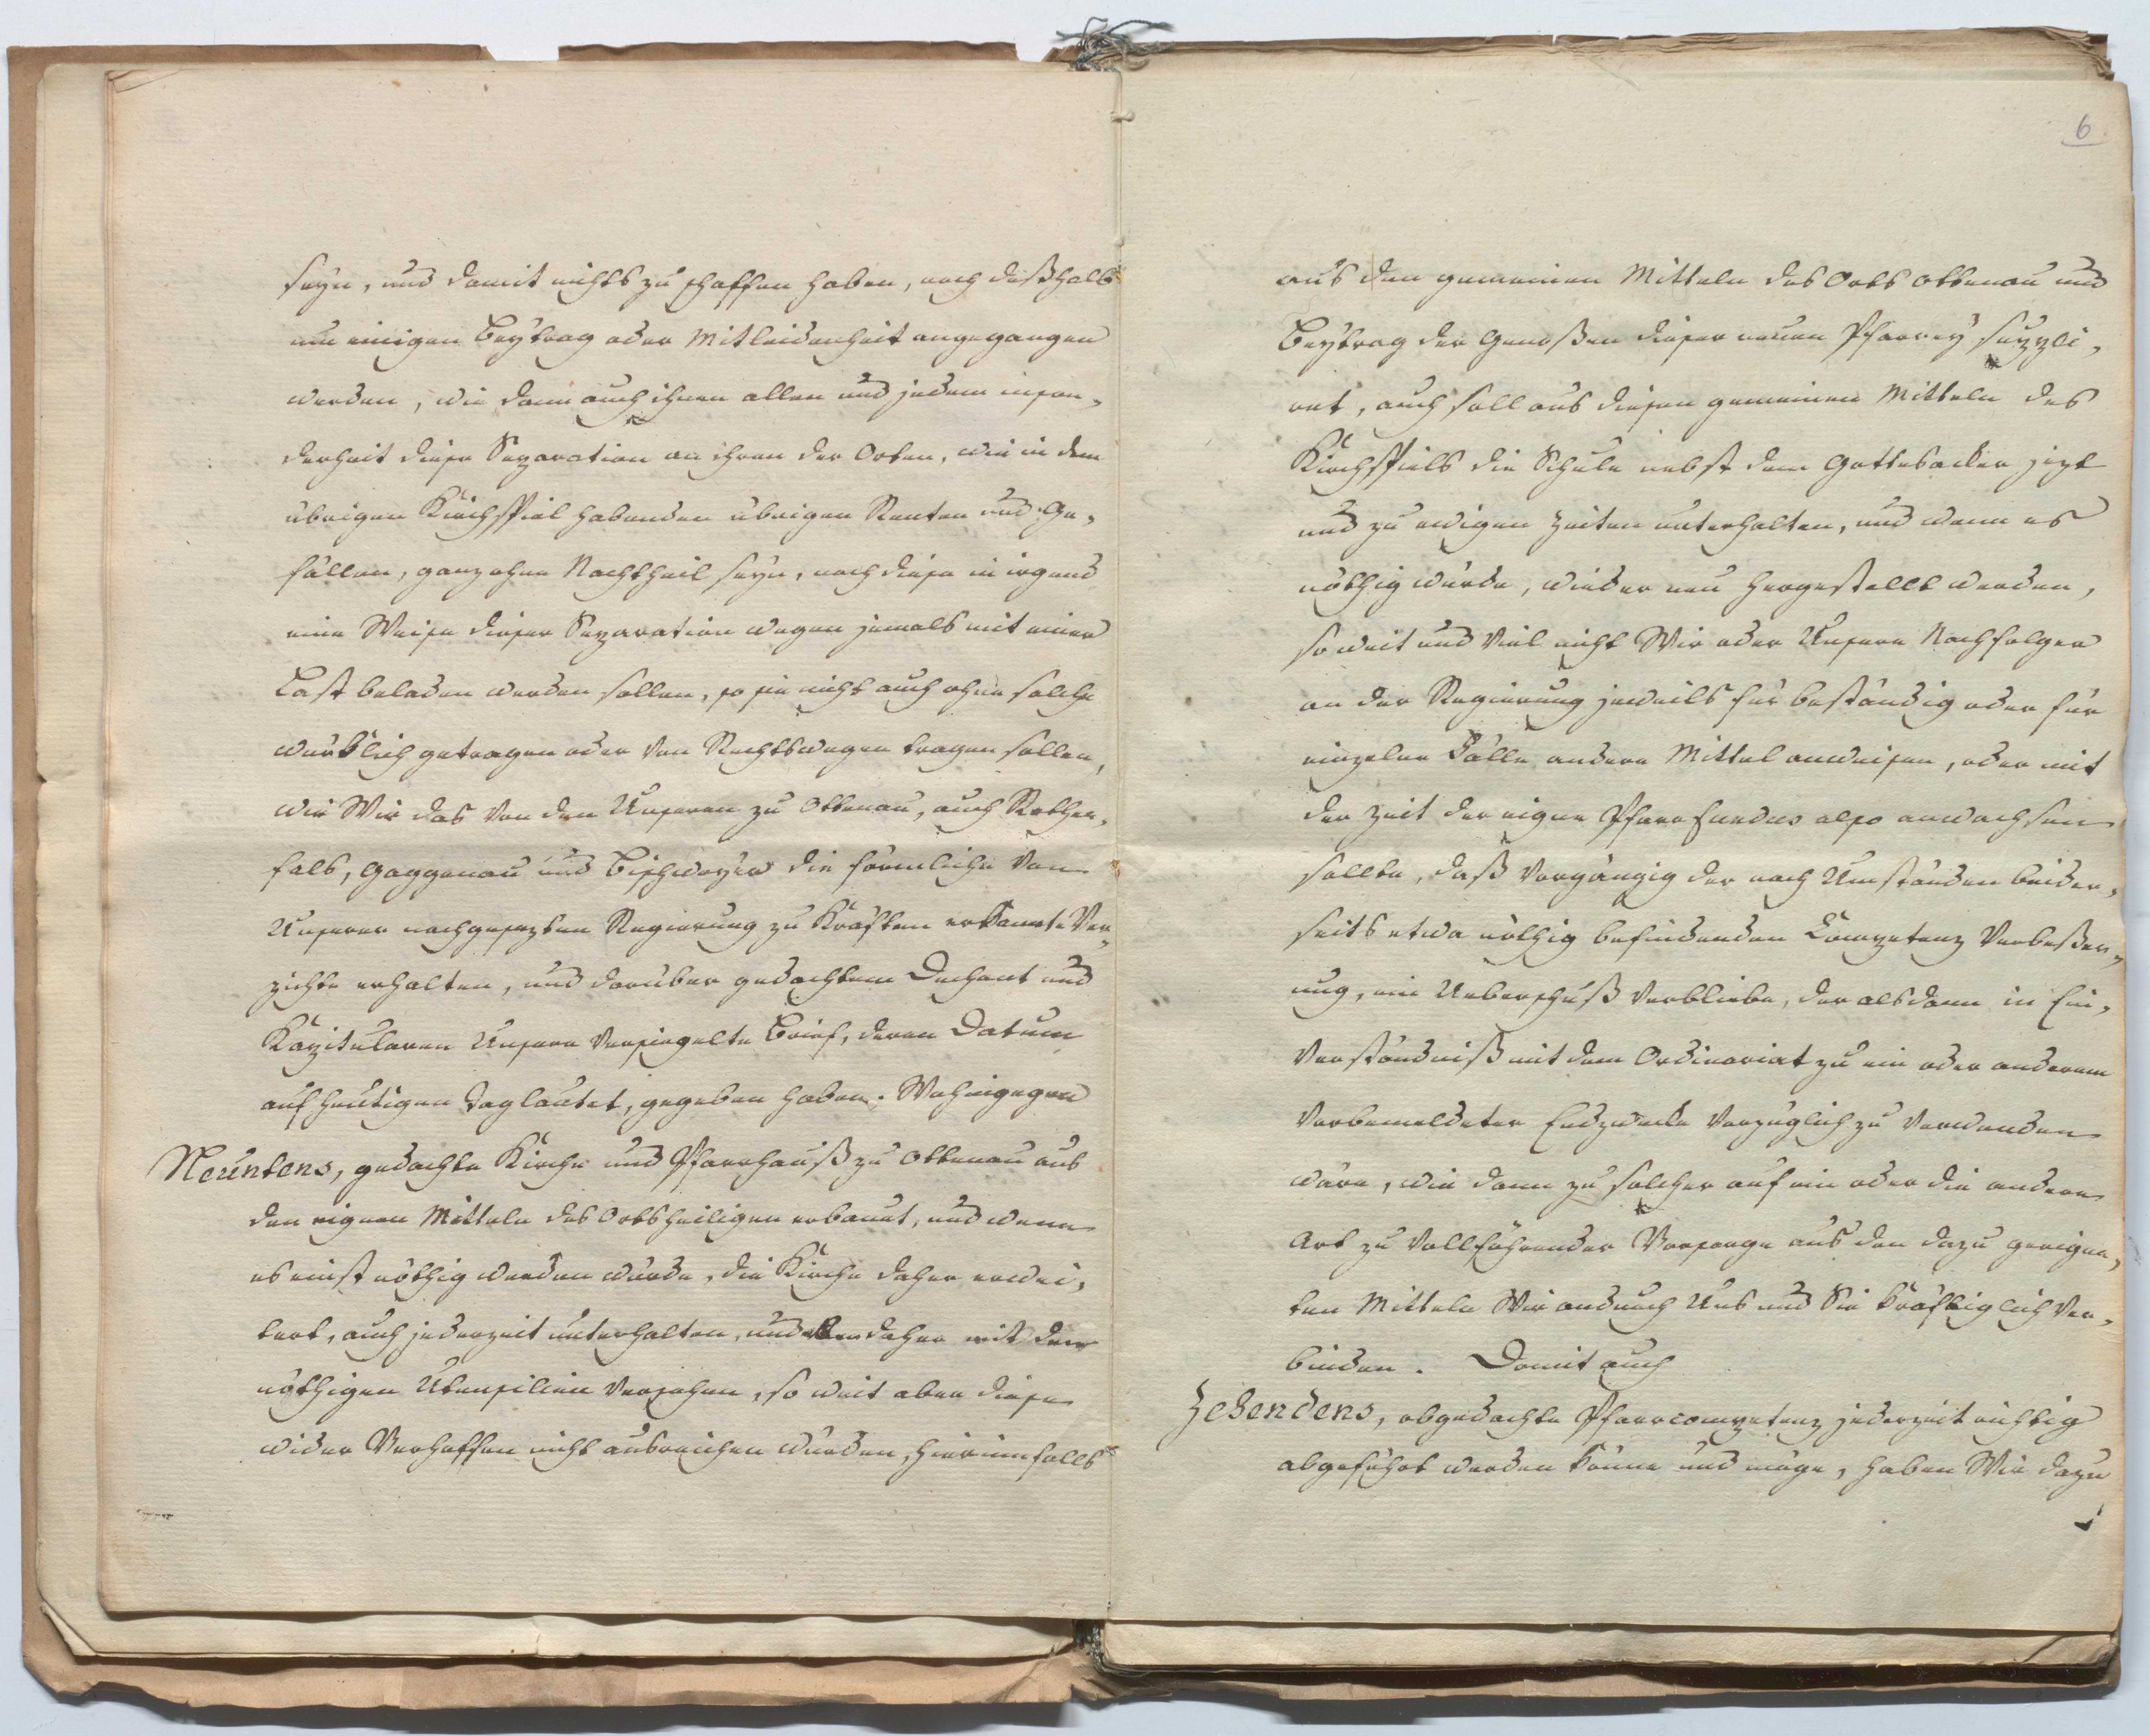 seyn, und damit nichts zu schaffen haben, noch deßhalb
um einigen Beytrag oder Mitleidenheit angegangen
werden, wie dann auch ihnen allen und jedem inson-
derheit diese Separation an ihren der Orten, wie in dem
übrigen Kirchspiel habenden übrigen Renten und Ge-
fällen, ganz ohne Nachtheil seyn, noch diese in irgend
eine Weise dieser Separation wegen jemals mit einer
Last beladen werden sollen, so sie nicht auch ohne solche
würklich getragen oder von Rechtswegen tragen sollen,
wie Wir das von den Unseren zu Ottenau, auch Rothen-
fels, Gaggenau und Bischweyer die förmliche von
Unserer nachgesezten Regierung zu Kräften erkannte Ver-
zichte erhalten, und darüber gedachtem Dechant und
Kapitularen Unsere versiegelte Brief, deren Datum
auf heutigen Tag lautet, gegeben haben. Wohingegen
Neuntens, gedachte Kirche und Pfarrhauß zu Ottenau aus
den eignen Mitteln des Ortsheiligen erbauet, und wenn
es einst nöthig werden würde, die Kirche daher erwei-
tert, auch jederzeit unterhalten, und eben daher mit den
nöthigen Utensilien versehen, so weit aber diese
wider Verhoffen nicht ausreichen würden, hierinfalls
6
aus den gemeinen Mitteln des Orts Ottenau und
Beytrag der Genoßen dieser neuen Pfarrey suppli-
ret, auch soll aus diesen gemeinen Mitteln des
Kirchspiels die Schule nebst dem Gottesacker jezt
und zu ewigen Zeiten unterhalten, und wenn es
nöthig würde, wieder neu hergestellt werden,
so weit und viel nicht Wir oder Unsere Nachfolger
an der Regierung jeweils für beständig oder für
einzelne Fälle andere Mittel anweisen, oder mit
der Zeit der eigne Pfarrfundus also anwachsen
sollte, daß vorgängig der nach Umständen beider-
seits etwa nöthig befindenden Competenz Verbeßer-
ung, ein Ueberschuß verbliebe, der alsdann in Ein-
verständniß mit dem Ordinariat zu ein oder anderem
vorbemeldeter Endzwecke vorzüglich zu verwenden
wäre, wie dann zu solcher auf ein oder die andere
Art zu vollführender Vorsorge aus den dazu geeigne-
ten Mitteln Wir andurch Uns und Sie kräftiglich ver-
binden. Damit auch
Zehendens, obgedachte Pfarrcompetenz jederzeit richtig
abgeführt werden könne und möge, haben Wir dazu